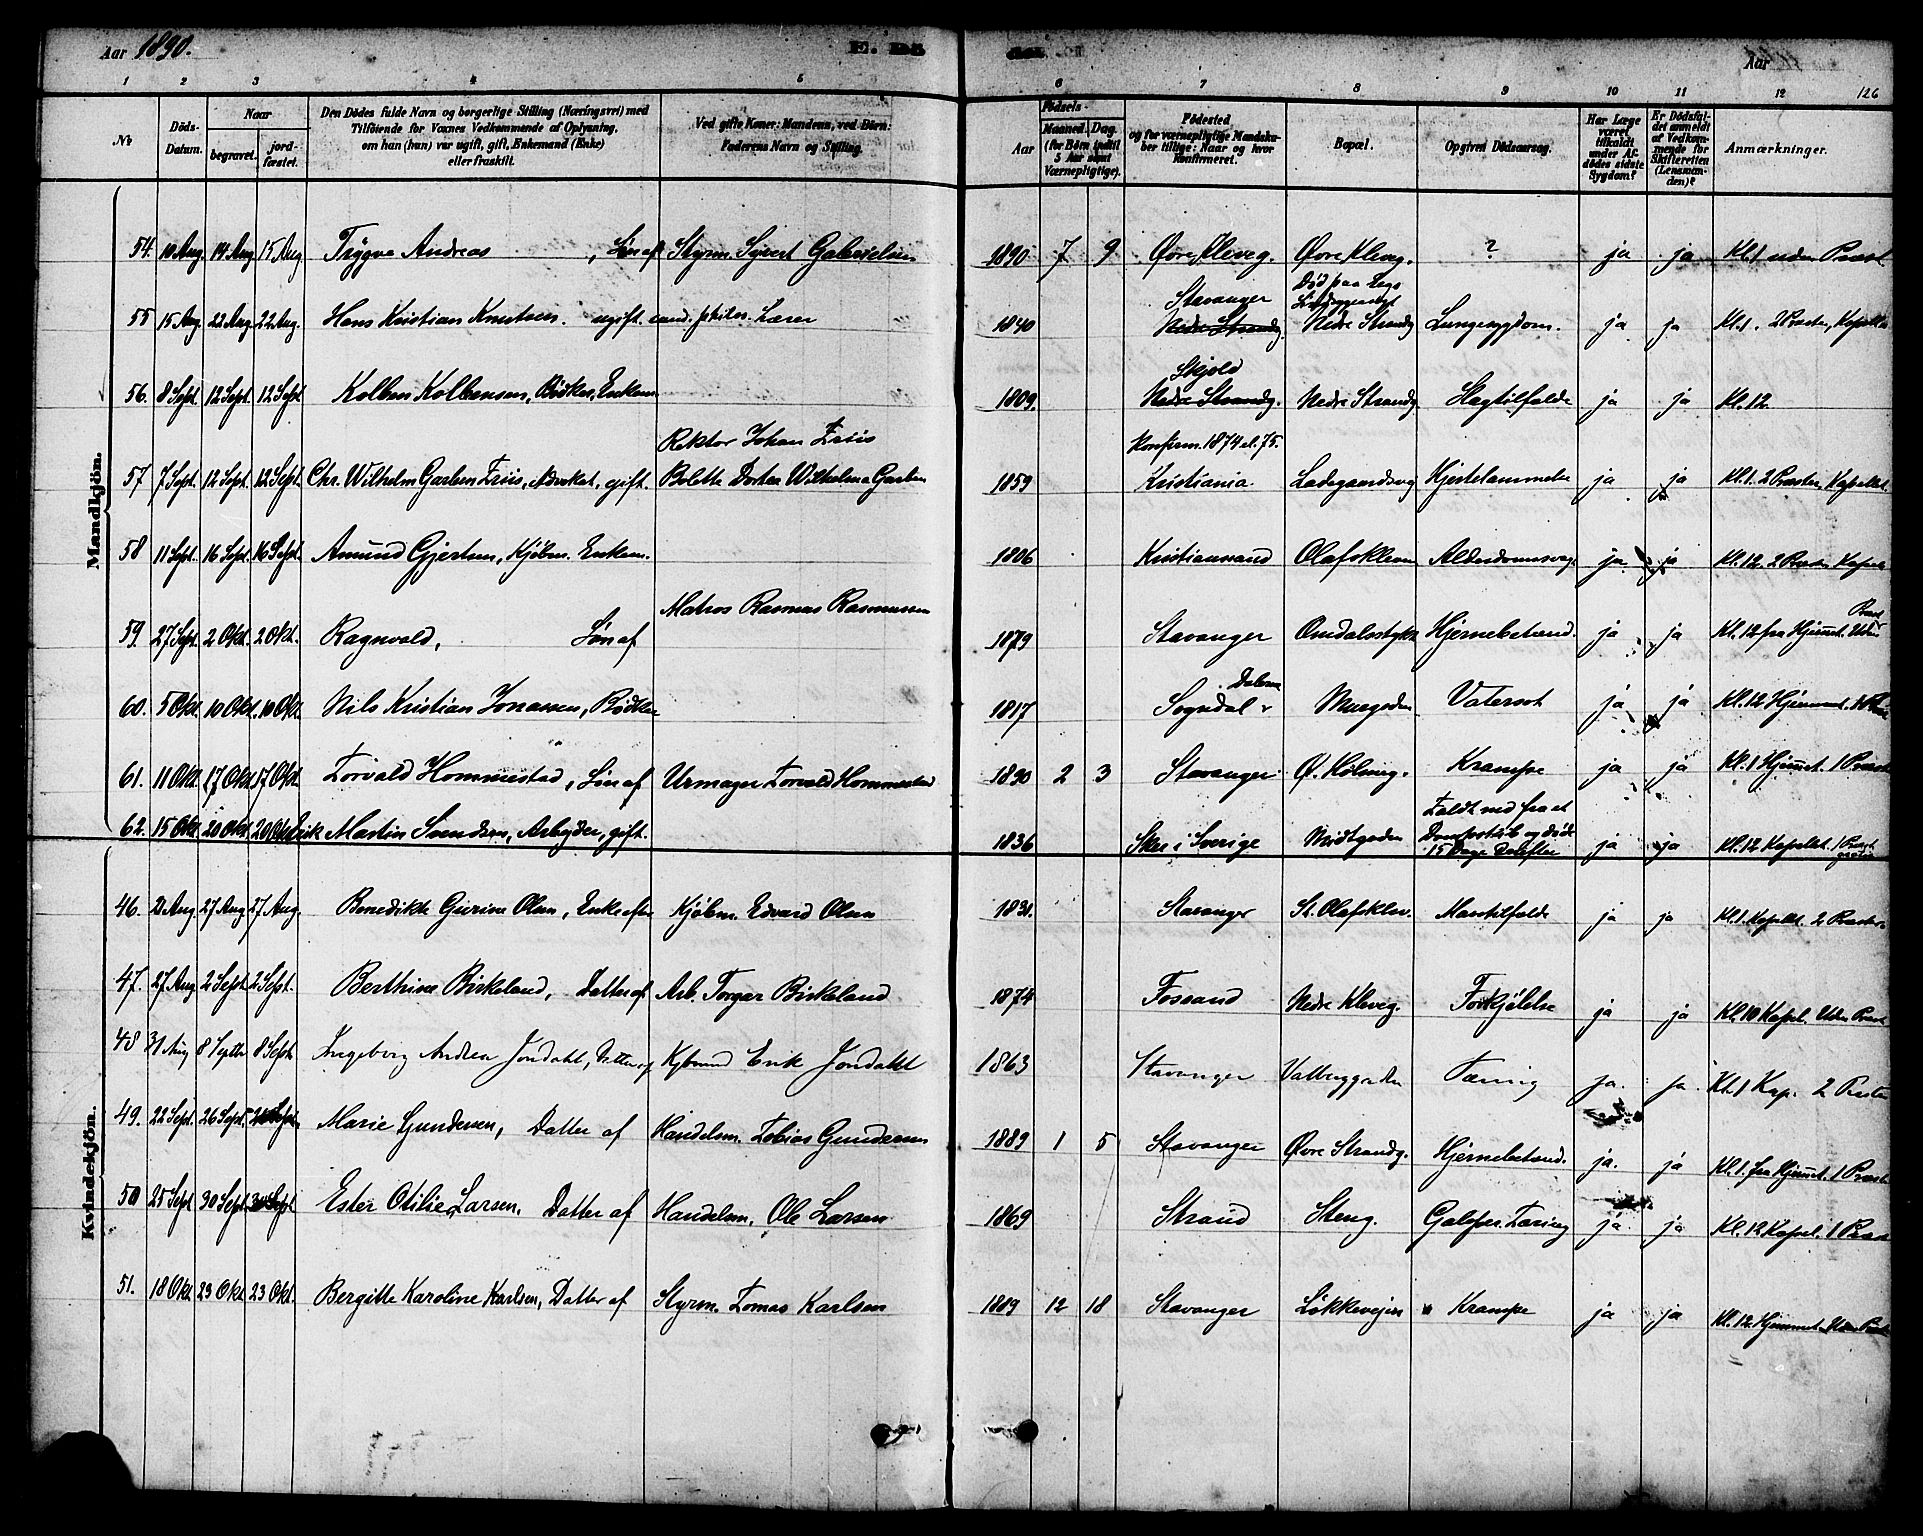 Aar 1890. E. Dö de. Aar 126
1 2 3 4 5 6 7 8 9 10 11 12
No Döds-Datum. Naar begravet. jordfæstet. Den Dödes fulde Navn og borgerlige Stilling (Næringsvei) med Tilföiende for Voxnes Vedkommende af Oplysning, om han (hun) var ugift, gift, Enkemand (Enke) eller fraskilt. Ved gifte Koner: Mandens, ved Börn: Faderens Navn og Stilling. Födsels- Aar Maaned. Dag. (for Börn indtil 5 Aar samt Værnepligtige). Födested og for værnepligtige Mandskaber tillige: Naar og hvor Konfirmeret. Bopæl. Opgiven Dödsaarsag. Har Læge været tilkaldt under Afdödes sidste Sygdom? Er Dödsfaldet anmeldt af Vedkommende for Skifteretten (Lensmanden)? Anmærkninger.
Mandkjön.
54. 10 Aug. 14 Aug 15 Aug Trygve Andreas, Sön af Styrm. Sivert Gabrielsen 1890 7 9 Øvre Kleveg. Øvre Kleveg. ? ja ja Kl. 1 uden Præst
55 15 Aug. 22 Aug. 22 Aug. Hans Kristian Knutsen. ugift. cand. philos. Lærer 1840 Stavanger Nedre Strandg. Död paa Nedre Strandg Lungesygdom. ja ja Kl. 1. 2 Præster, Kapellet
56. 8 Sept. 12 Sept. 12 Sept Kolben Kolbensen, Bödker, Enkem. 1809. Skjold Nedre Strandg. Nedre Strandg. Slagtilfælde ja ja Kl. 12.
57 7 Sept. 12 Sept. 12 Sept. Chr. Wilhelm Garben Friis, Advokat, gift. Rektor Johan Friis Bolette Dortea Wilhelmine Garben 1859 Konfirm. 1874 el. 75. Kristiania. Ladegaardsveg Hjertelammelse ja ja Kl. 1. 2 Præster, Kapellet.
58 11 Sept. 16 Sept. 16 Sept. Amund Gjertsen, Kjöbm. Enkem. 1806 Kristianssand Olafskleven Alderdomssvag. ja ja Kl. 12. 2 Præster Kapel
59. 27 Sept. 2 Okt. 2 Okt. Ragnvald, Sön af Matros Rasmus Rasmussen 1879 Stavanger Hjernebetænd. ja ja Kl. 12 fra Hjemmet. Uden Præst
60. 5 Okt. 10 Okt. 10 Okt. Nils Kristian Jonassen, Bödker 1817 Sogndal Dalerne Murgaden Vatersot ja ja Kl. 12 Hjemmet.
61. 11 Okt. 17 Okt. 17 Okt. Torvald Hommestad, Sön af Urmager Torvald Hommestad 1890 2 3 Stavanger Ø. Holmeg. Krampe ja ja Kl. 1 Hjemmet. 1 Præst
62. 15 Okt. 20 Okt. 20 Okt. Erik Martin Svendsen, Arbejder, gift. 1836 i Sverige Midtgaden Faldt ned fra et Dampskib og döde 15 Dage derefter ja ja Kl. 12 Kapellet. 1 Præst gratis
Kvindekjön.
46. 21 Aug. 27 Aug 27 Aug. Benedikte Gurine Olsen, Enke efter Kjöbm. Edvard Olsen 1831. Stavanger St. Olafsklev. ja ja Kl. 1. Kapellet. 2 Præster
47. 27 Aug 2 Sept. 2 Sept. Berthine Birkeland, Datter af Arb. Torger Birkeland 1874 Fossand Nedre Kleveg. Forkjölelse ja ja Kl. 10 Kapel. Uden Præst
48 31 Aug 8 Septbr 8 Septb Ingeborg Andrea Jondahl, Datter af Kjöbmand Erik Jondahl 1863 Stavanger Valbjerggaden Tæring ja. ja. Kl. 1 Kap. 2 Prester
49. 22 Sept. 26 Sept. 26 Sept. Marie Gundersen, Datter af Handelsm. Tobias Gundersen 1889 1 5 Stavanger Øvre Strandg. Hjernebetænd. ja. ja Kl. 1. fra Hjemmet. 1 Præst
50 25 Sept 30 Sept. 30 Sept. Ester Otilie Larsen, Datter af Handelsm. Ole Larsen 1869 Strand Steng. Galop. Tæring ja ja Kl. 12 Kapel. 1 Præst
51. 18 Okt. 23 Okt 23 Okt. Bergitte Karoline Karlsen, Datter af Styrm. Tomas Karlsen 1889 12 18 Stavanger Lökkeveien Krampe ja ja Kl. 12. Hjemmet. Uden Præst